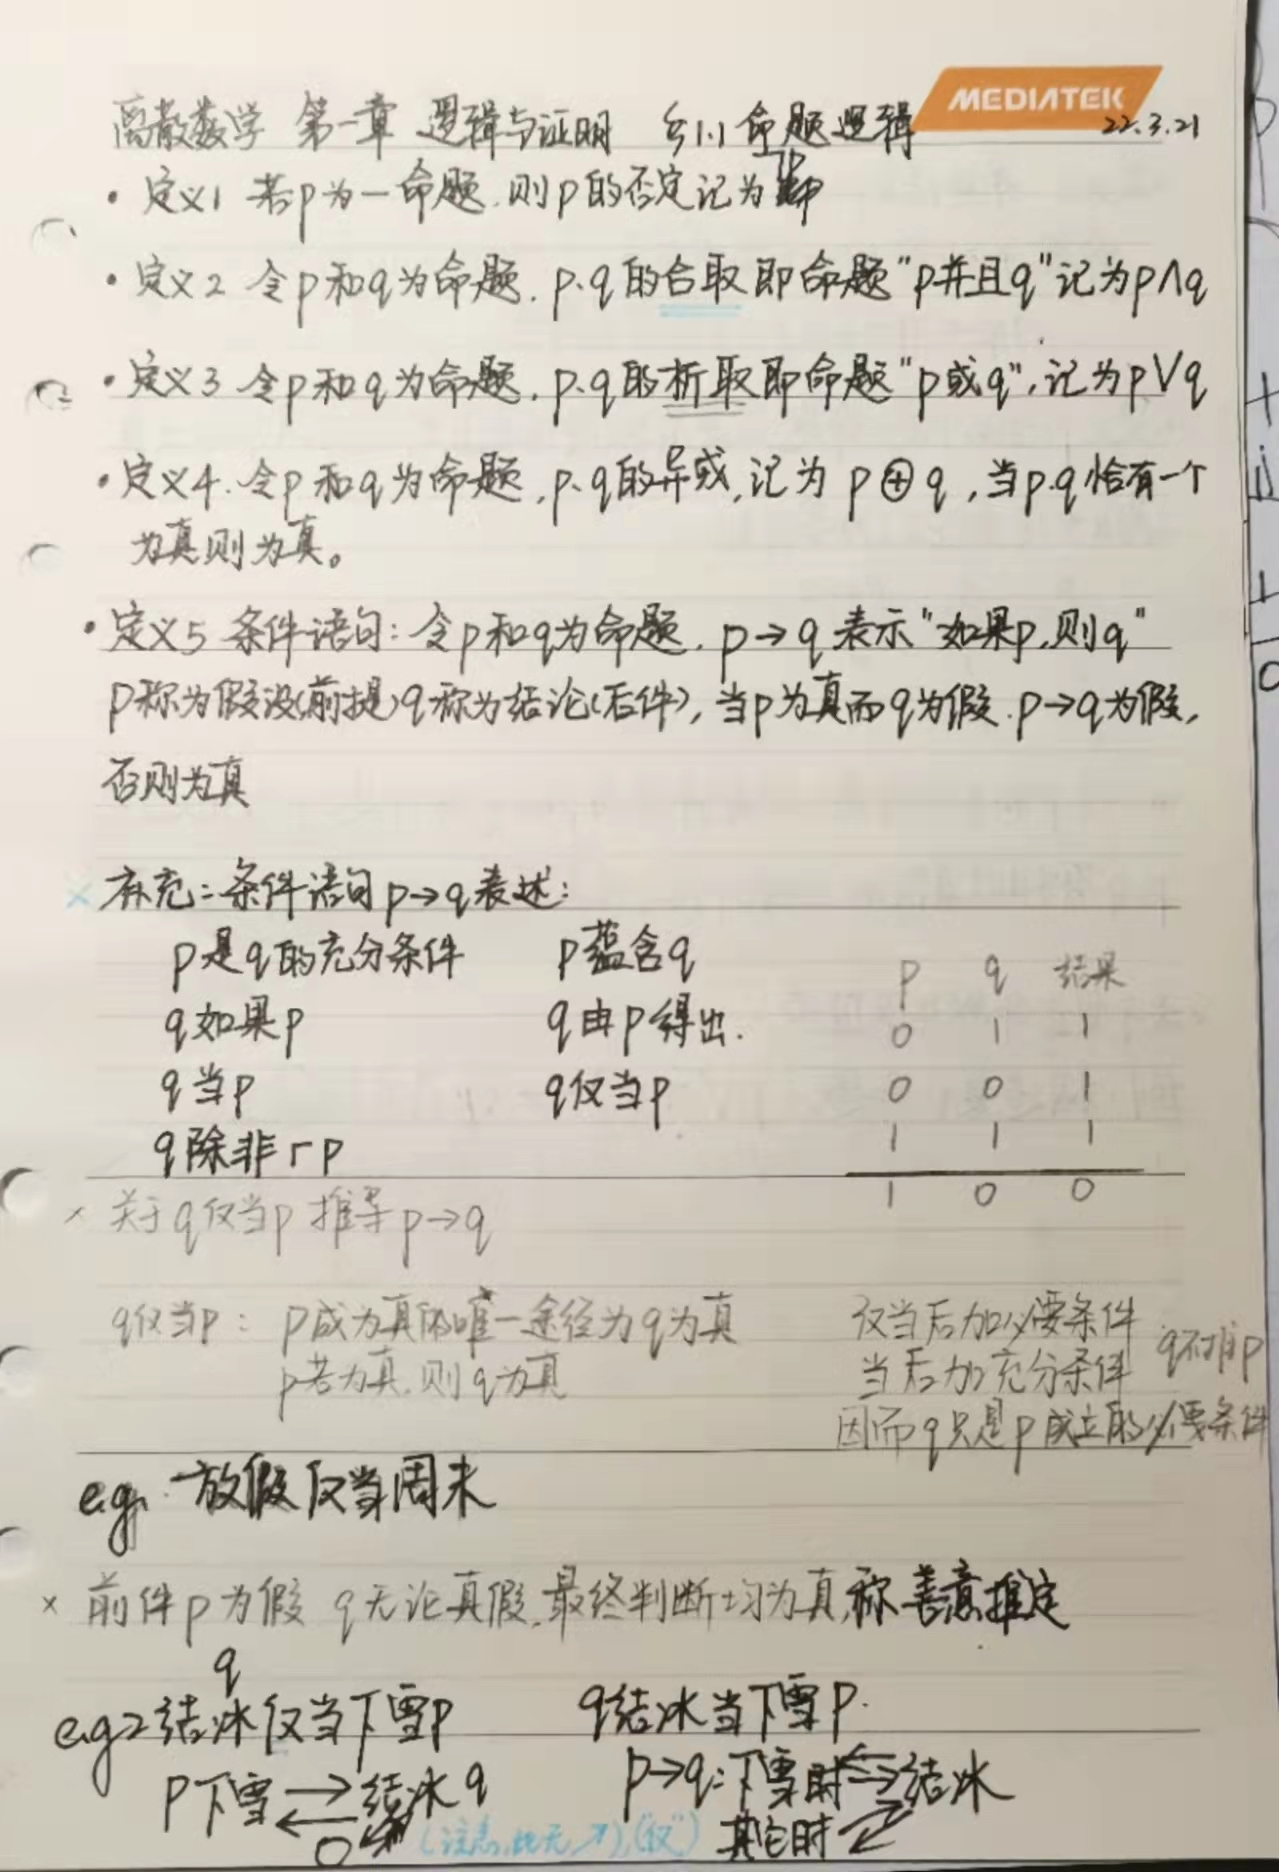 MEDIATEK
离散数学 第一章 逻辑与证明 §1.1 命题逻辑 22.3.21
· 定义1 若p为一命题,则p的否定记为¬p
· 定义2 令p和q为命题,p、q的合取即命题"p并且q"记为p∧q
· 定义3 令p和q为命题,p、q的析取即命题"p或q",记为p∨q
· 定义4.令p和q为命题,p、q的异或,记为 p⊕q,当p.q恰有一个
为真则为真。
· 定义5 条件语句:令p和q为命题,p→q 表示"如果p,则q"
p称为假设(前提)q称为结论(后件),当p为真而q为假,p→q为假,
否则为真
× 补充:条件语句p→q表述:
p是q的充分条件 p蕴含q
q如果p q由p得出.
q当p q仅当p
q除非¬p
p q 结果
0 1 1
0 0 1
1 1 1
1 0 0
× 关于q仅当p 推导p→q
q仅当p: p成为真的唯一途径为q为真
p若为真,则q为真
仅当后加必要条件
当后加充分条件 q不推p
因而q只是p成立的必要条件
e.g. 放假仅当周末
× 前件p为假 q无论真假,最终判断均为真,称善意推定
q
e.g2结冰仅当下雪p q结冰当下雪p.
p下雪 → 结冰q p→q:下雪时 结冰
← 0 (注意,此无↗),("仅") 其它时